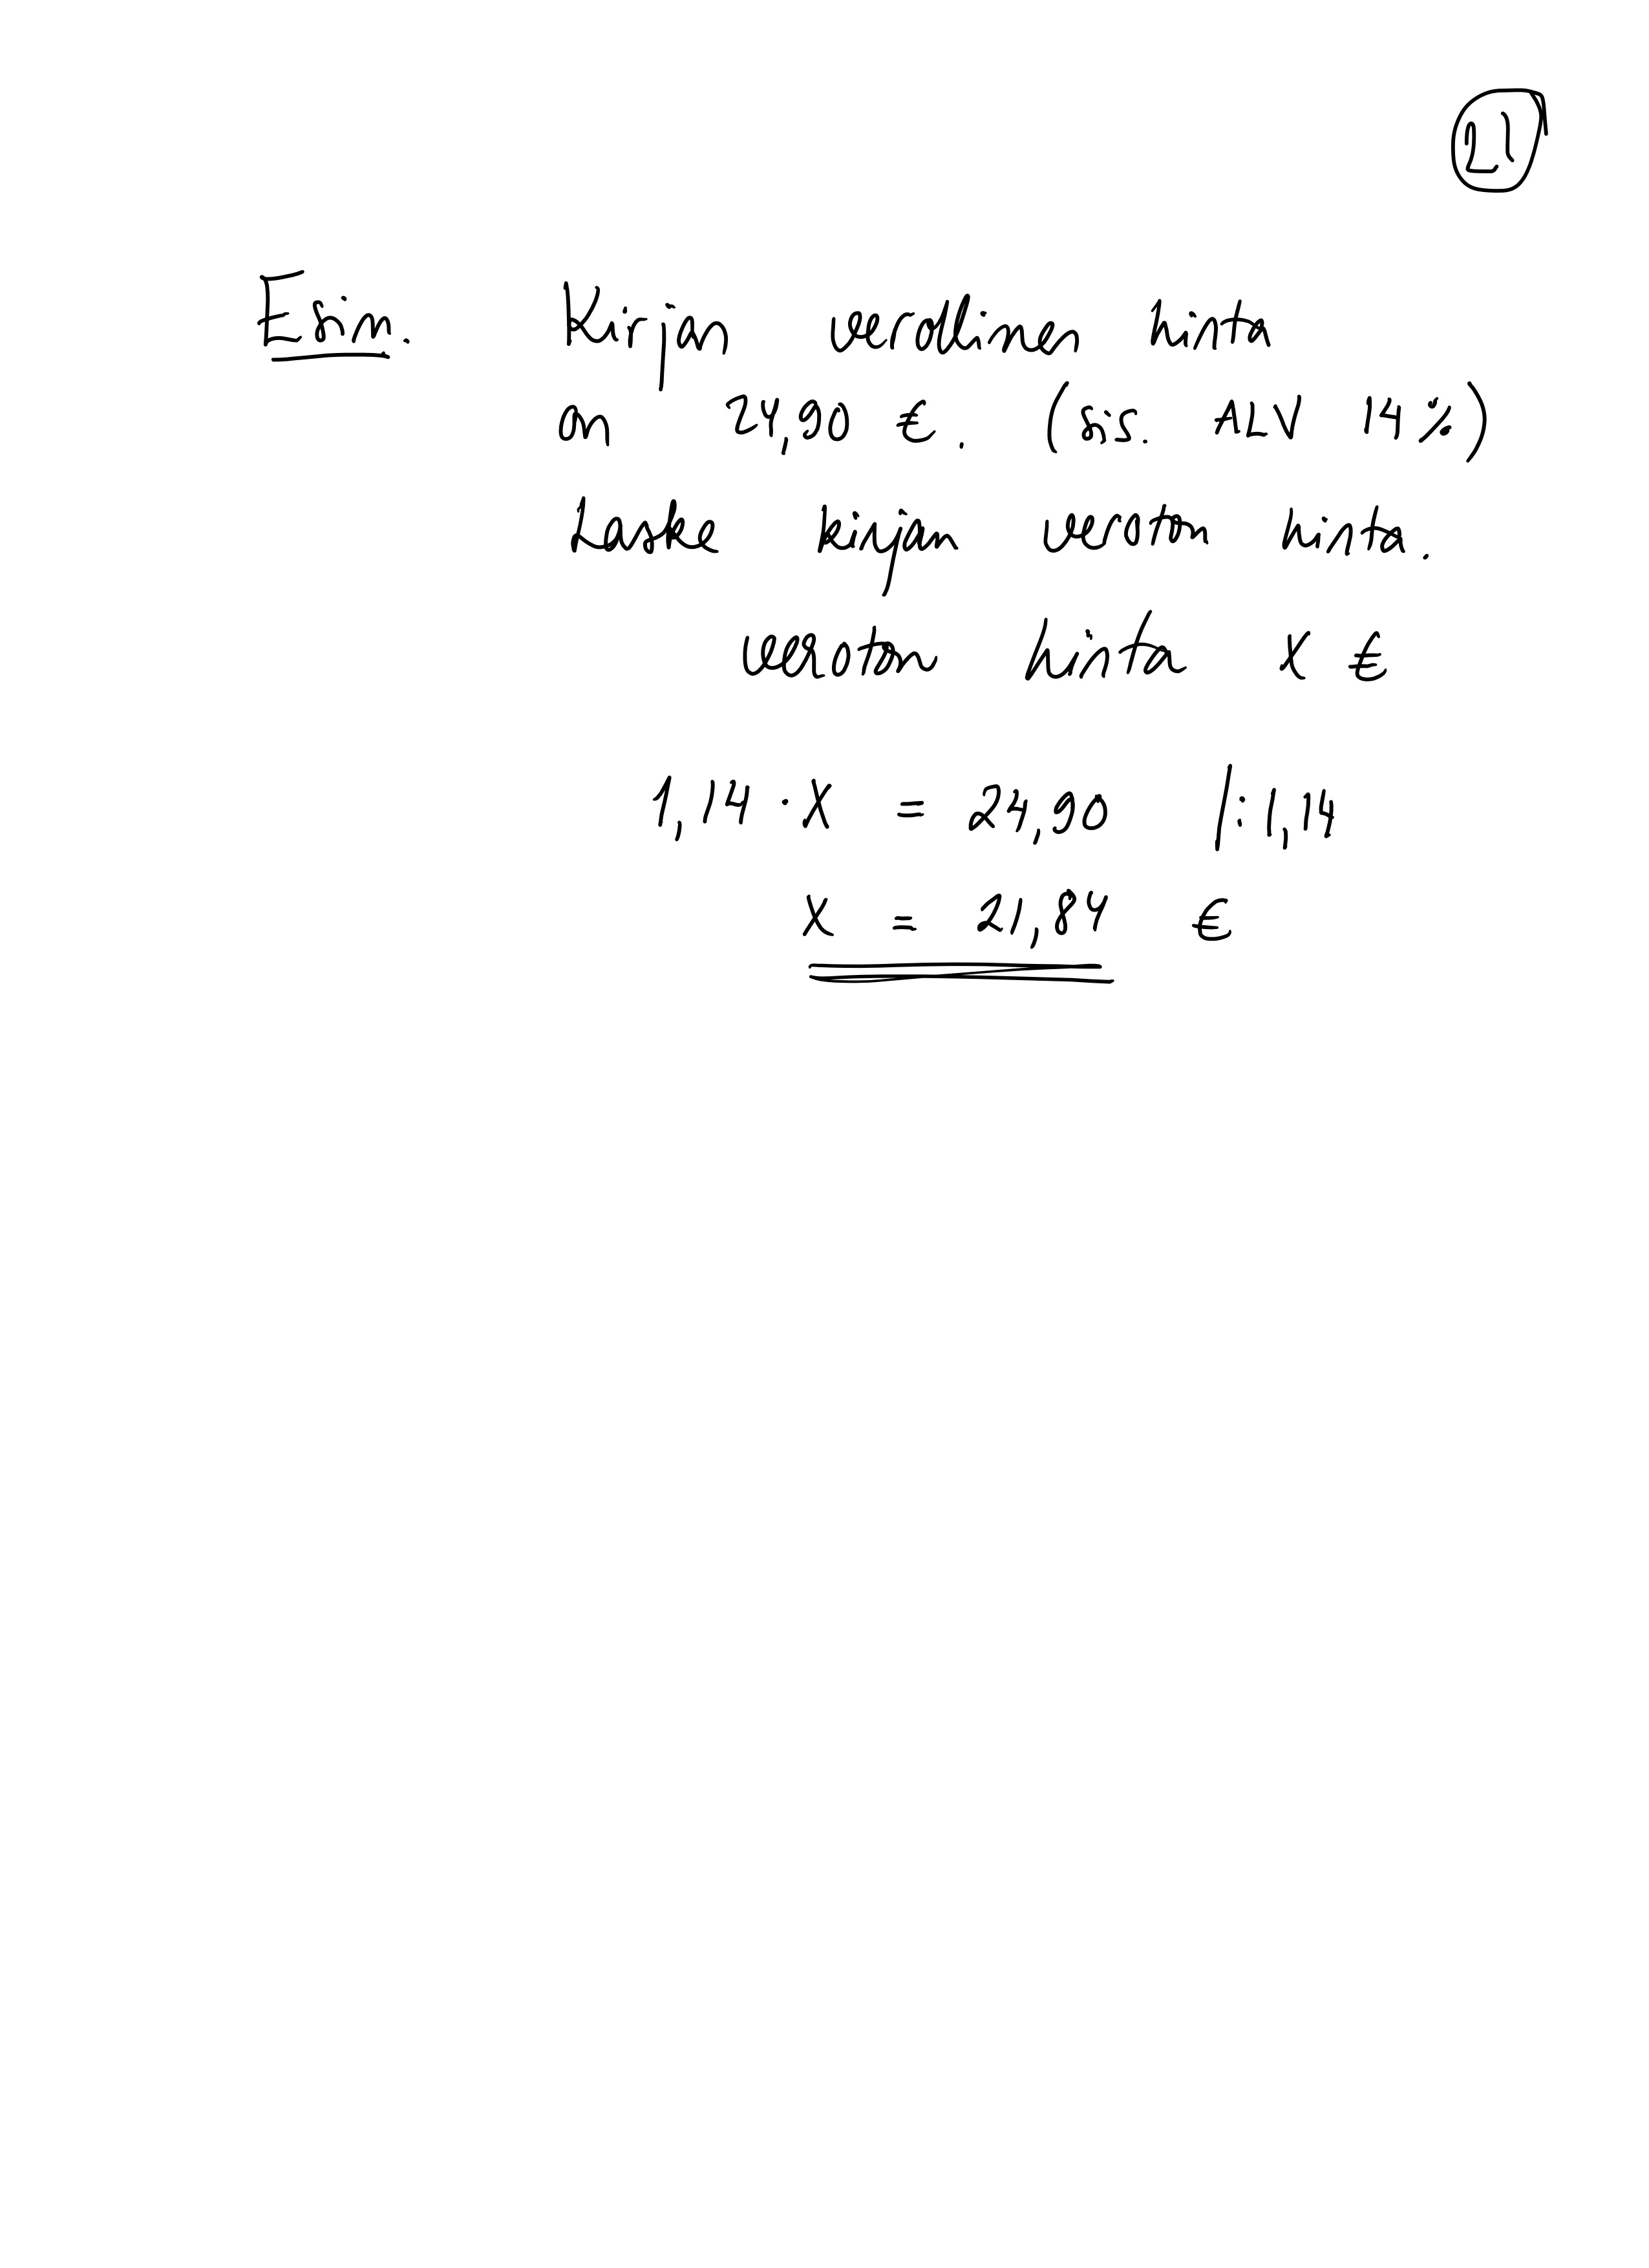 21
Esim. Kirjan verollinen hinta
on 24,90 €. (sis. ALV 14%)
Laske kirjan veroton hinta.
veroton hinta x €
1,14 · x = 24,90 |: 1,14
x = 21,84 €